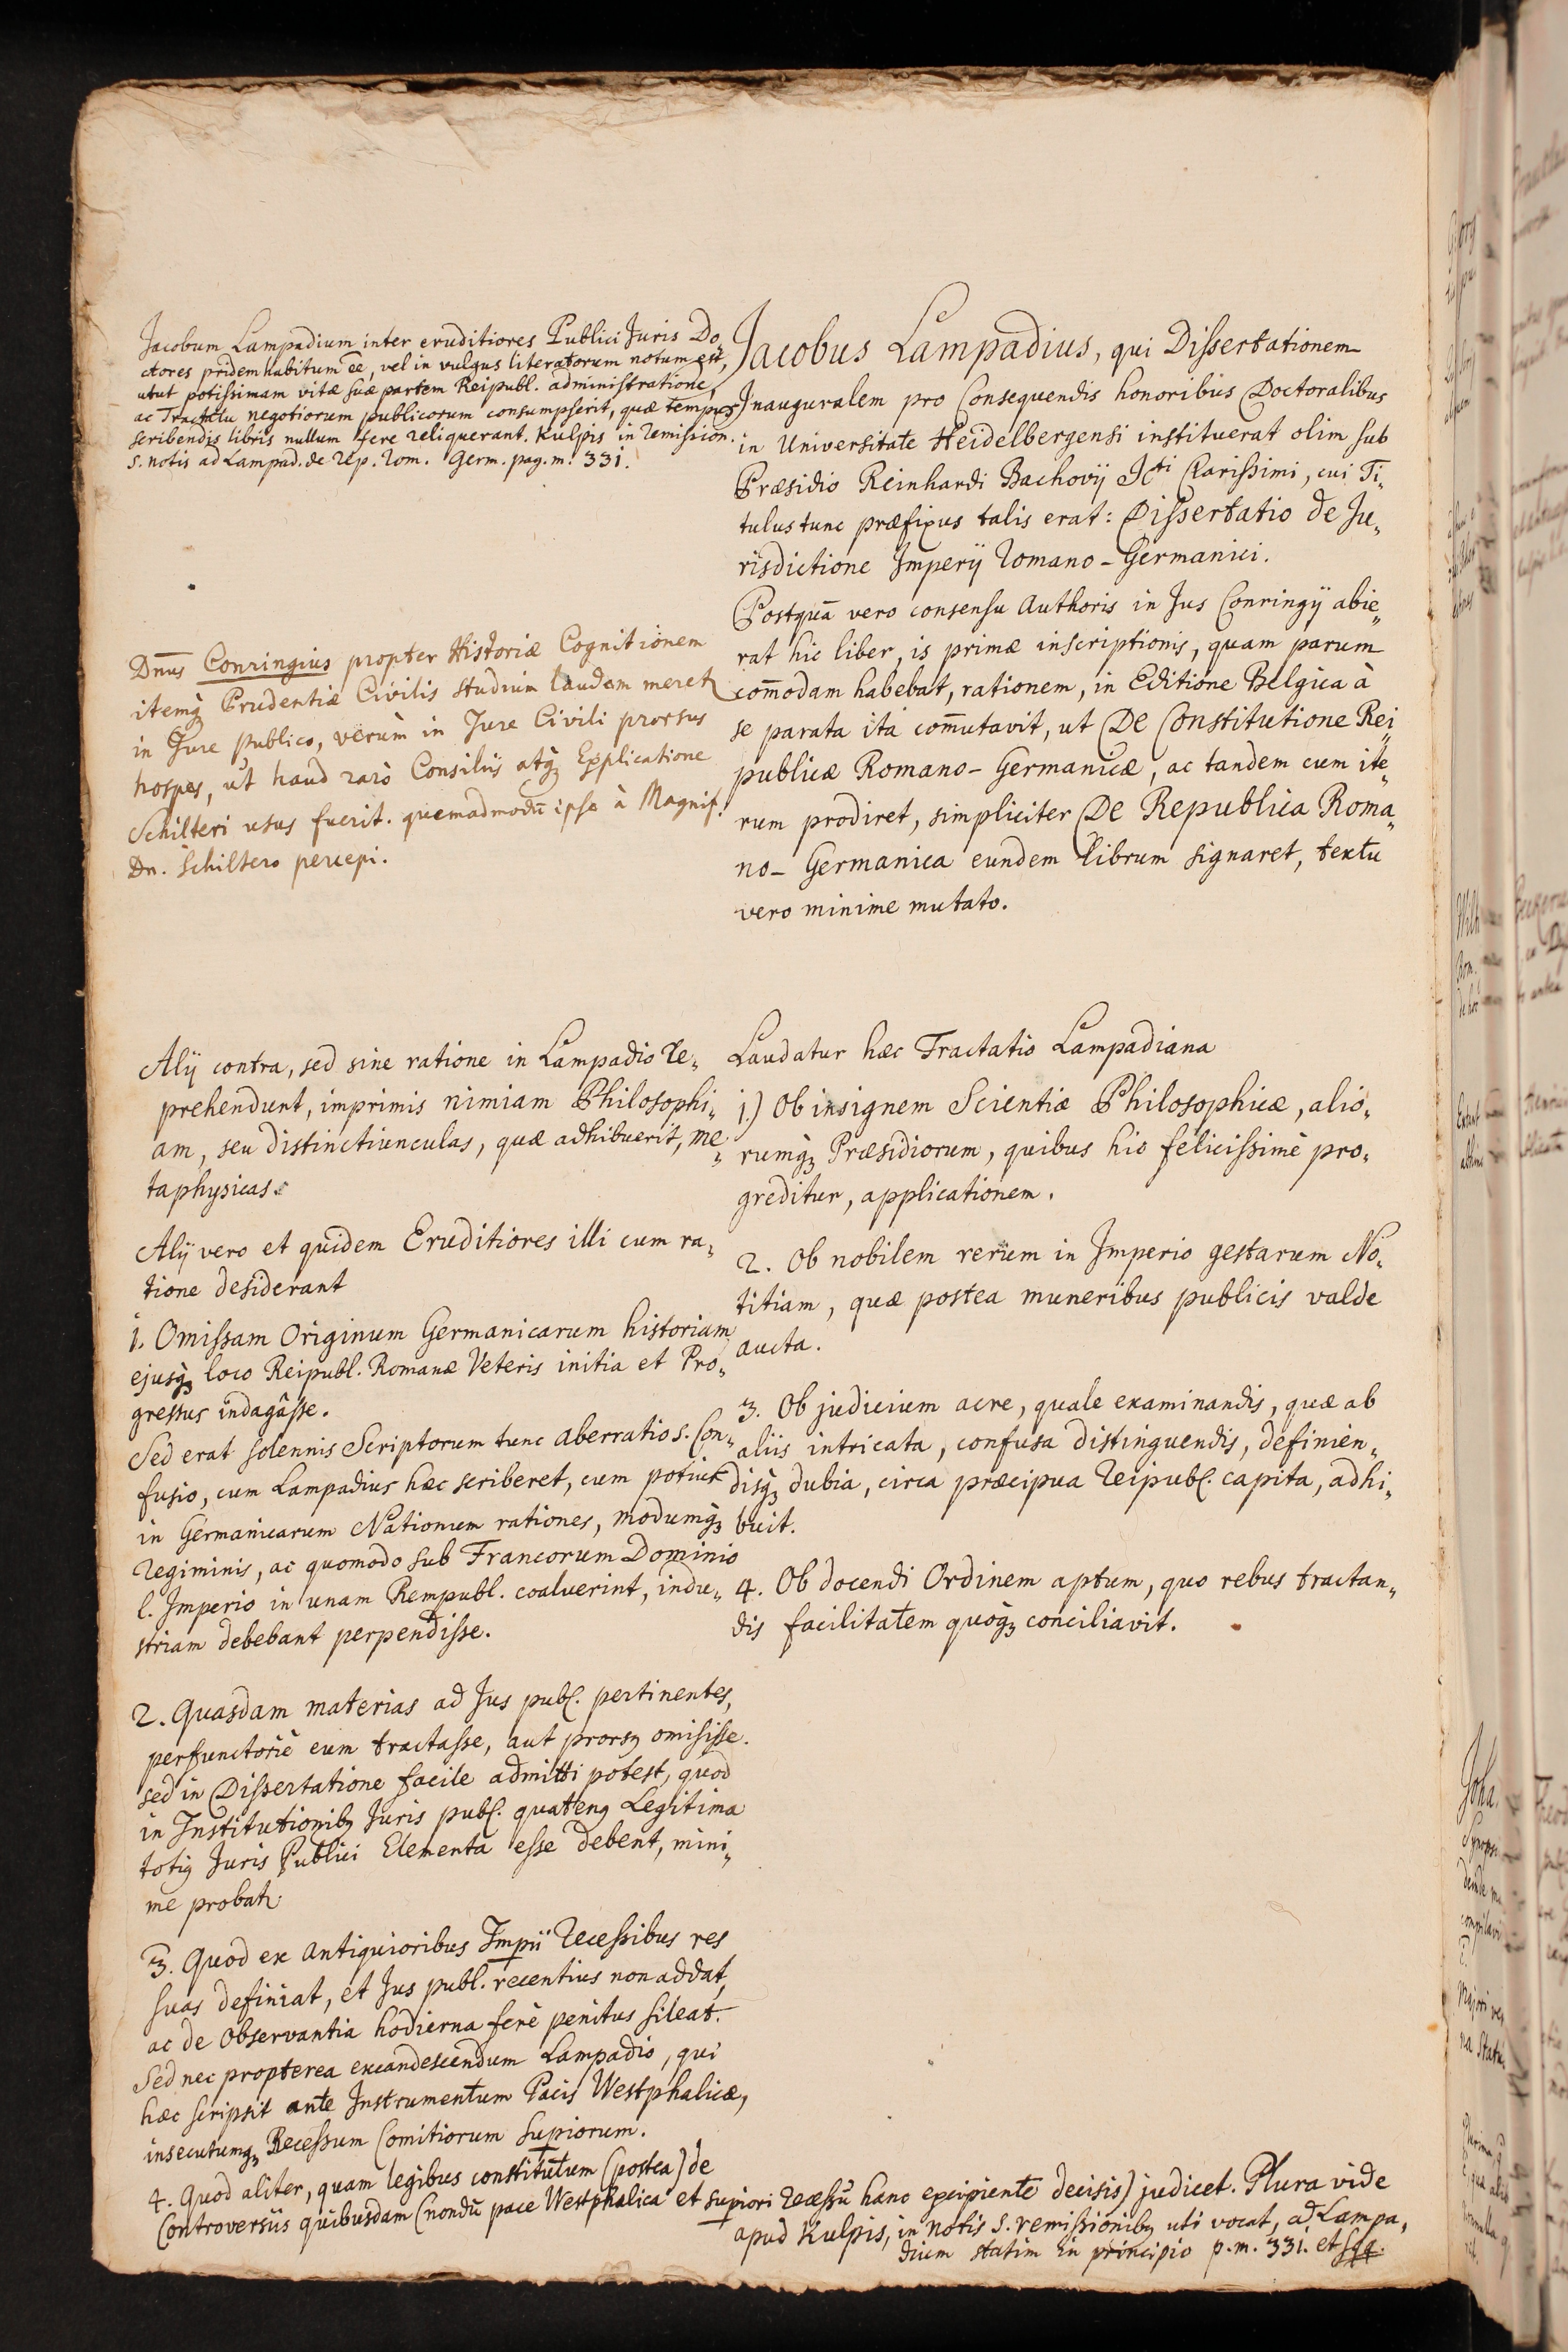 Jacobum Lampadium inter eruditiores Publici Juris Do„
ctores pridem habitum ēe, vel in vulgus literatorum notum est,
utut potissimam vitæ suæ partem Reipubl. administratione,
ac Tractatu negotiorum publicorum consumpserit, quæ tempus
scribendis libris nullum fere reliquerant. Kulpis in remission.
s. notis ad Lampad. de rep. rom. Germ. pag. m. 331.
Dn̄us Conringius propter Historiæ Cognitionem
itemq́ꝫ Prudentiæ Civilis studium laudem meretꝛ
in Jure publico, verùm in Jure Civili prorsus
hospes, ut haud rarò Consiliis atq́ꝫ Explicatione
Schilteri usus fuerit. quemadmodū ipse à Magnif.
Dn. Schiltero percepi.
Alij contra, sed sine ratione in Lampadio re„
prehendunt, imprimis nimiam Philosophi„
am, seu distinctiunculas, quæ adhibuerit, me„
taphysicas.
Alij vero et quidem Eruditiores illi cum ra„
tione desiderant
1. Omissam Originum Germanicarum historiam
ejusq́ꝫ loco Reipubl. Romanæ Veteris initia et Pro„
gressus indagâsse.
Sed erat solennis Scriptorum tunc aberratio s. Con„
fusio, cum Lampadius hæc scriberet, cum potius
in Germanicarum Nationum rationes, modumq́ꝫ
regiminis, ac quomodo sub Francorum Dominio
l. Imperio in unam Rempubl. coaluerint, indu„
striam debebant perpendisse.
2. Quasdam materias ad Jus publ. pertinentes,
perfunctoriè eum tractasse, aut prorsꝫ omisisse.
sed in Dissertatione facile admitti potest, quod
in Institutionibꝫ Juris publ. quatenꝫ Legitima
totiꝫ Juris Publici Elementa esse debent, mini„
me probatꝛ
3. Quod ex antiquioribus Imp̱ii recessibus res
suas definiat, et Jus publ. recentius non addat,
ac de observantia hodierna ferè penitus sileat.
Sed nec propterea excandescendum Lampadio, qui
hæc scripsit ante Instrumentum Pacis Westphalicæ,
insecutumq́ꝫ Recessum Comitiorum sup̱iorum.
4. Quod aliter, quam legibus constitutum (postea) de
Controversiis quibusdam (nondū pace Westphalica et sup̱iori recessū hanc excipiente decisis) judicet. Plura vide
apud Kulpis, in notis s. remissionibꝫ uti vocat, ad Lampa„
dium statim in principio p. m. 331. et sqq.
Jacobus Lampadius, qui Dissertationem
Inauguralem pro Consequendis honoribus Doctoralibus
in Universitate Heidelbergensi instituerat olim sub
Præsidio Reinhardi Bachovij Jcti Clarissimi, cui Ti„
tulus tunc præfixus talis erat: Dissertatio de Ju„
risdictione Imperij Romano-Germanici.
Postquā vero consensu Authoris in Jus Conringij abie„
rat hic liber, is primæ inscriptionis, quam parum
com̄odam habebat, rationem, in Editione Belgica à
se parata ita com̄utavit, ut De Constitutione Rei„
publicæ Romano-Germanicæ, ac tandem cum ite„
rum prodiret, simpliciter De Republica Roma„
no-Germanica eundem librum signaret, textu
vero minime mutato.
Laudatur hæc Tractatio Lampadiana
1.) Ob insignem Scientiæ Philosophicæ, alio„
rumq́ꝫ Præsidiorum, quibus hic felicissimè pro„
greditur, applicationem.
2. Ob nobilem rerum in Imperio gestarum No„
titiam, quæ postea muneribus publicis valde
aucta.
3. Ob judicium acre, quale examinandis, quæ ab
aliis intricata, confusa distinguendis, definien„
disq́ꝫ dubia, circa præcipua reipubl. capita, adhi„
buit.
4. Ob docendi Ordinem aptum, quo rebus tractan„
dis facilitatem quoq́ꝫ conciliavit.